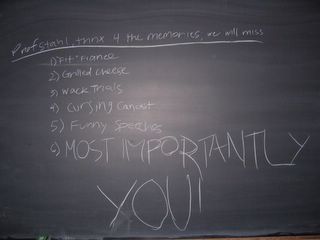 Prof Stahl, thnx 4 the memories, we will miss
1) Fit + Fiance
2) Grilled cheese
3) Wack Trials
4) Cursing
5) Funny Speeches
6) MOST IMPORTANTLY
YOU!